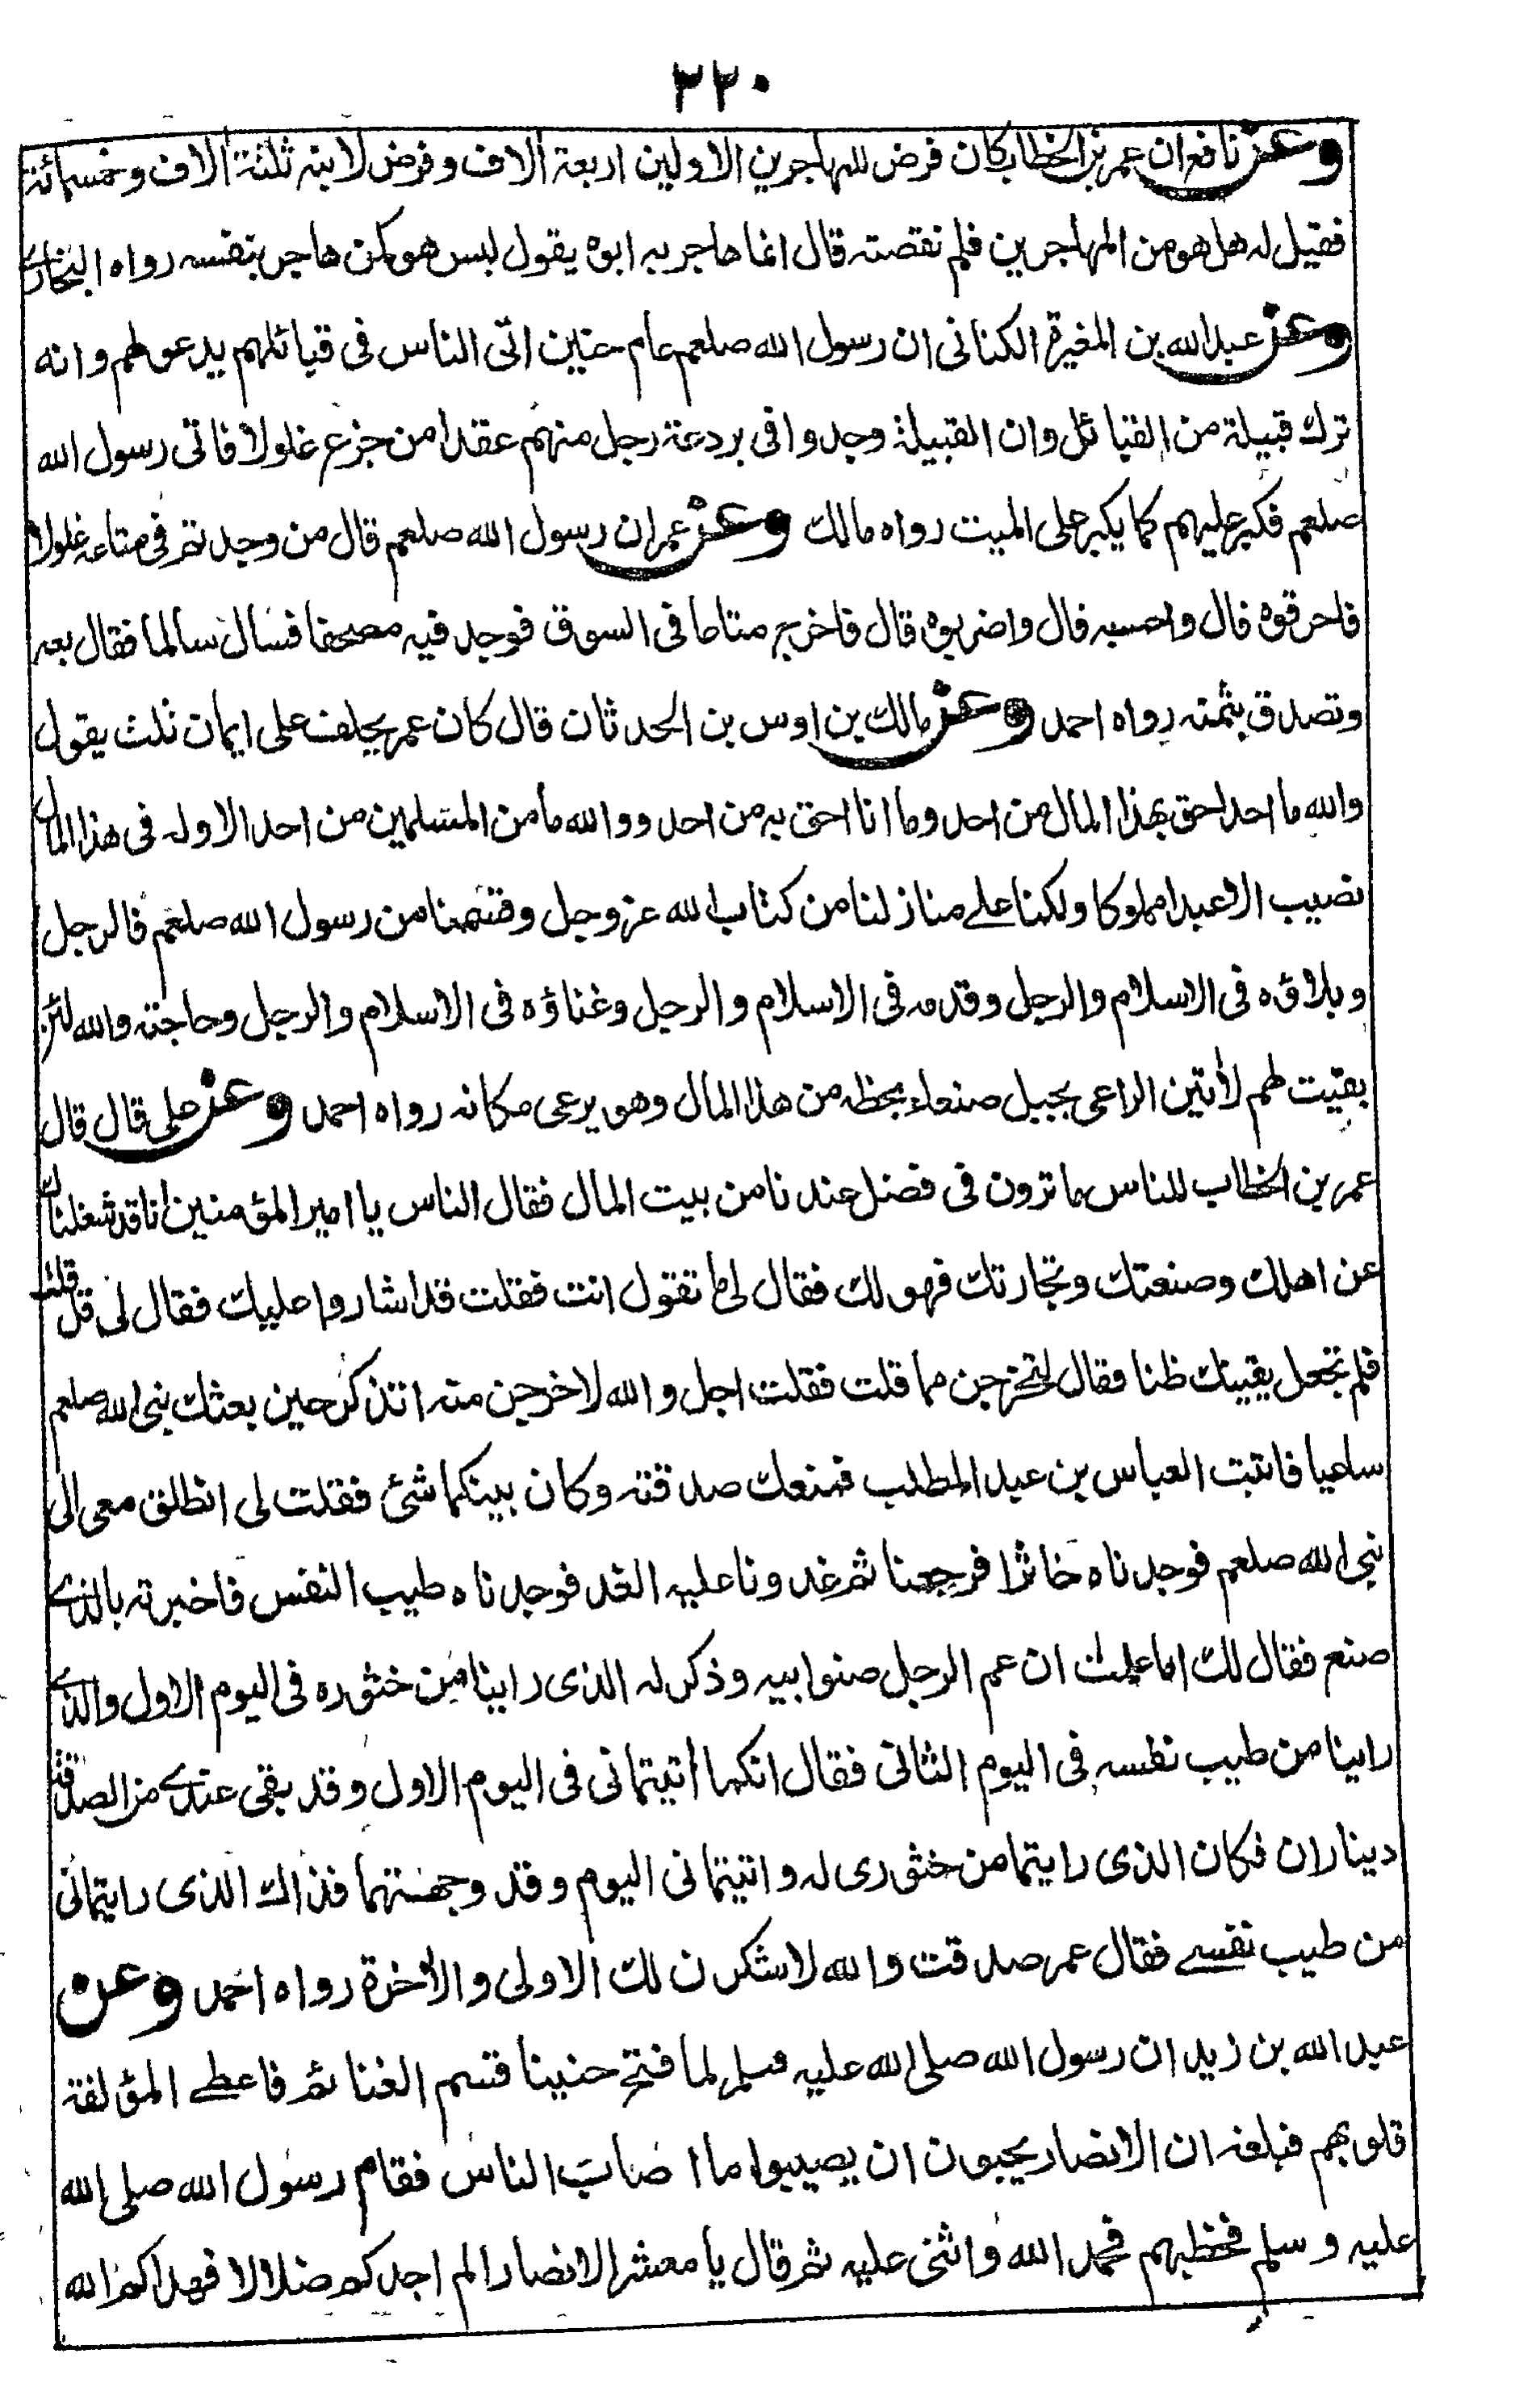 ٢٢٠
وعن نافع ان عمر بن الخطاب كان فرض للمهاجرين الاولين اربعة آلاف وفرض لابنه ثلثة آلاف وخمسمائة
فقيل له هل هو من المهاجرين فلم نقصته قال انما هاجر به ابوه يقول ليس هو كمن هاجر بنفسه رواه البخارى
وعن عبد الله بن المغيرة الكنانى ان رسول الله صلعم عام حنين اتى الناس فى قبائلهم يدعو لهم وانه
ترك قبيلة من القبائل وان القبيلة وجدوا فى بردعة رجل منهم عقدا من جزع غلولا فاتى رسول الله
صلعم فكبر عليهم كما يكبر على الميت رواه مالك وعن عمر ان رسول الله صلعم قال من وجدتم فى متاعه غلولا
فاحرقوه قال واحسبه قال واضربوه قال فاخرج متاعا فى السوق فوجد فيه مصحفا فسال سالما فقال بعه
وتصدق بثمنه رواه احمد وعن مالك بن اوس بن الحدثان قال كان عمر يحلف على ايمان ثلث يقول
والله ما احد احق بهذا المال من احد وما انا احق به من احد ووالله ما من المسلمين من احد الا وله فى هذا المال
نصيب الا عبدا مملوكا ولكنا على منازلنا من كتاب الله عز وجل وقسمنا من رسول الله صلعم فالرجل
وبلاؤه فى الاسلام والرجل وقدمه فى الاسلام والرجل وغناؤه فى الاسلام والرجل وحاجته والله لئن
بقيت لهم لأتين الراعى بجبل صنعاء بحظه من هذا المال وهو يرعى مكانه رواه احمد وعن على قال قال
عمر بن الخطاب للناس ما ترون فى فضل عندنا من بيت المال فقال الناس يا امير المؤمنين انا قد شغلناك
عن اهلك وصنعتك وتجارتك فهو لك فقال لى ما تقول انت فقلت قد اشاروا عليك فقال لى قل قلت
فلم تجعل يقينك ظنا فقال لتخرجن مما قلت فقلت اجل والله لاخرجن منه اتذكر حين بعثك نبى الله صلعم
ساعيا فاتيت العباس بن عبد المطلب فمنعك صدقته وكان بينكما شئ فقلت لى انطلق معى الى
نبى الله صلعم فوجدناه خاثرا فرجعنا ثم غدونا عليه الغد فوجدناه طيب النفس فاخبرته بالذى
صنع فقال لك اما علمت ان عم الرجل صنو ابيه وذكر له الذى راينا من خثوره فى اليوم الاول والذى
راينا من طيب نفسه فى اليوم الثانى فقال انكما أتيتمانى فى اليوم الاول وقد بقى عندى من الصدقة
ديناران فكان الذى رايتما من خثورى له واتيتمانى اليوم وقد وجهتهما فذاك الذى رايتمانى
من طيب نفسے فقال عمر صدقت والله لاشكرن لك الاولى والأخرة رواه احمد وعن
عبد الله بن زيد ان رسول الله صلى الله عليه وسلم لما فتح حنينا قسم الغنائم فاعطے المؤلفة
قلوبهم فبلغه ان الانصار يحبون ان يصيبوا ما اصاب الناس فقام رسول الله صلى الله
عليه وسلم فخطبهم فحمد الله واثنى عليه ثم قال يا معشر الانصار الم اجدكم ضلالا فهداكم الله